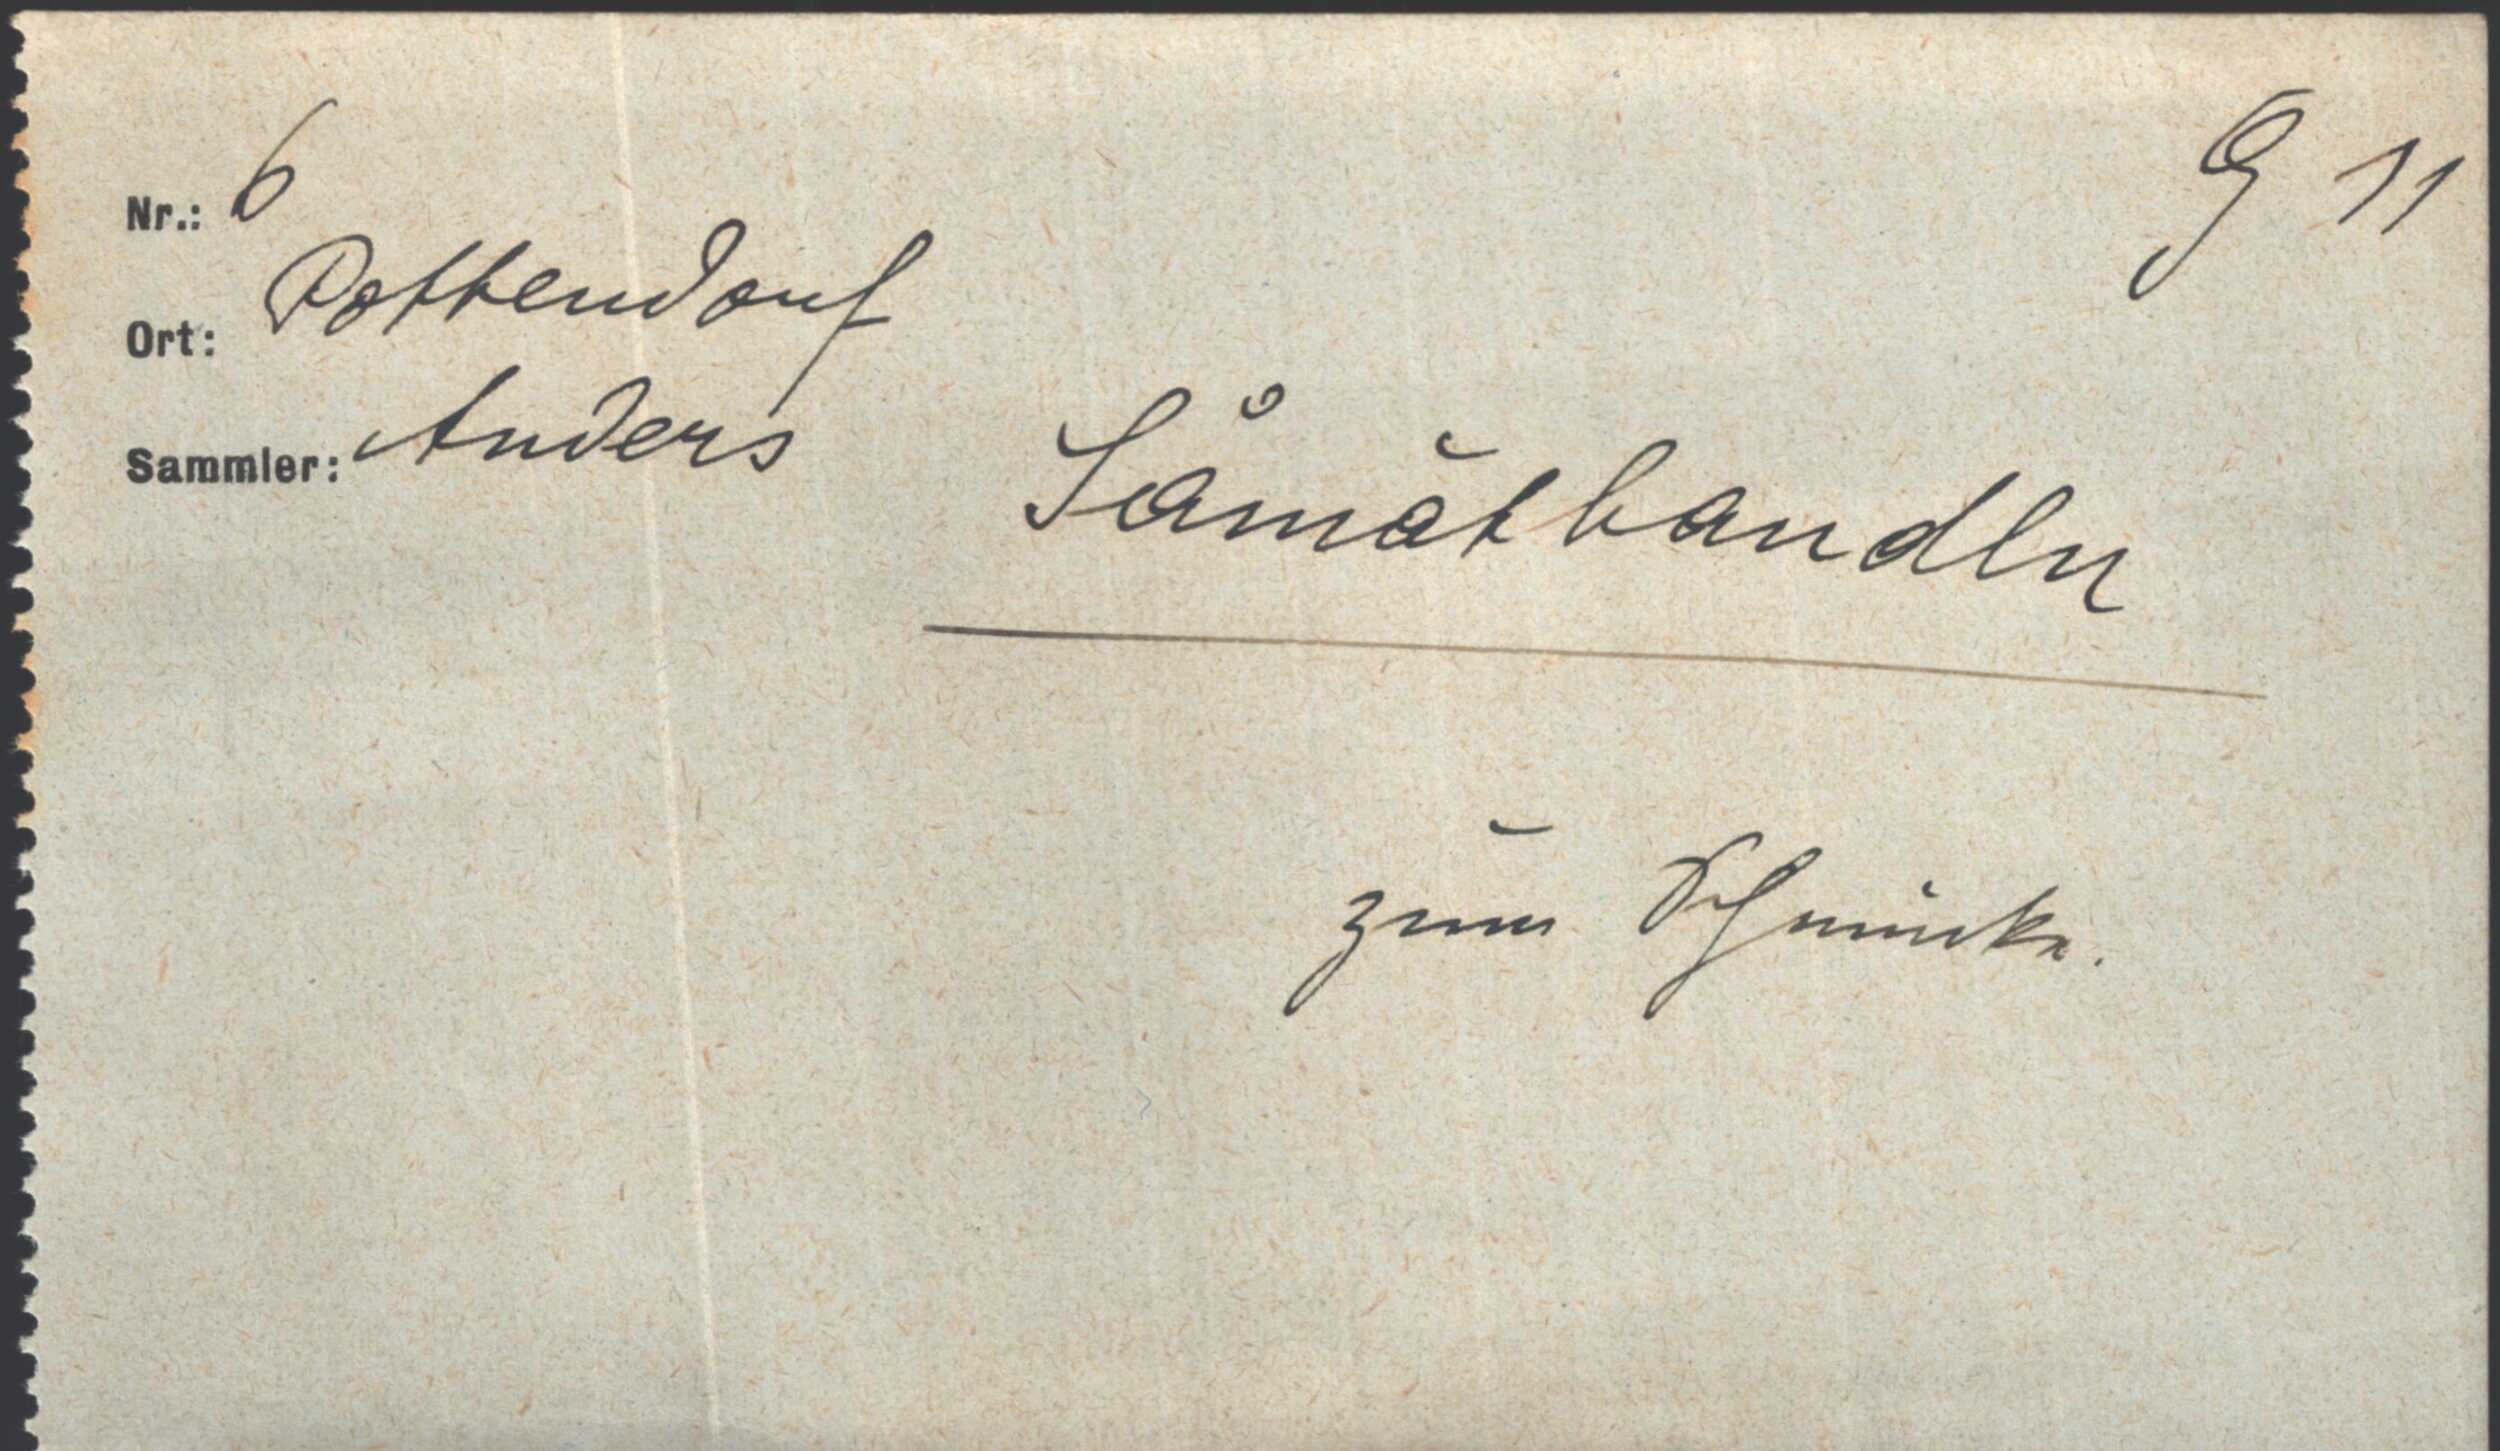 Nr.: 6
G 11
Ort: Pottendorf
Sammler: Anders
Såmătbandln
zum Schmücke.